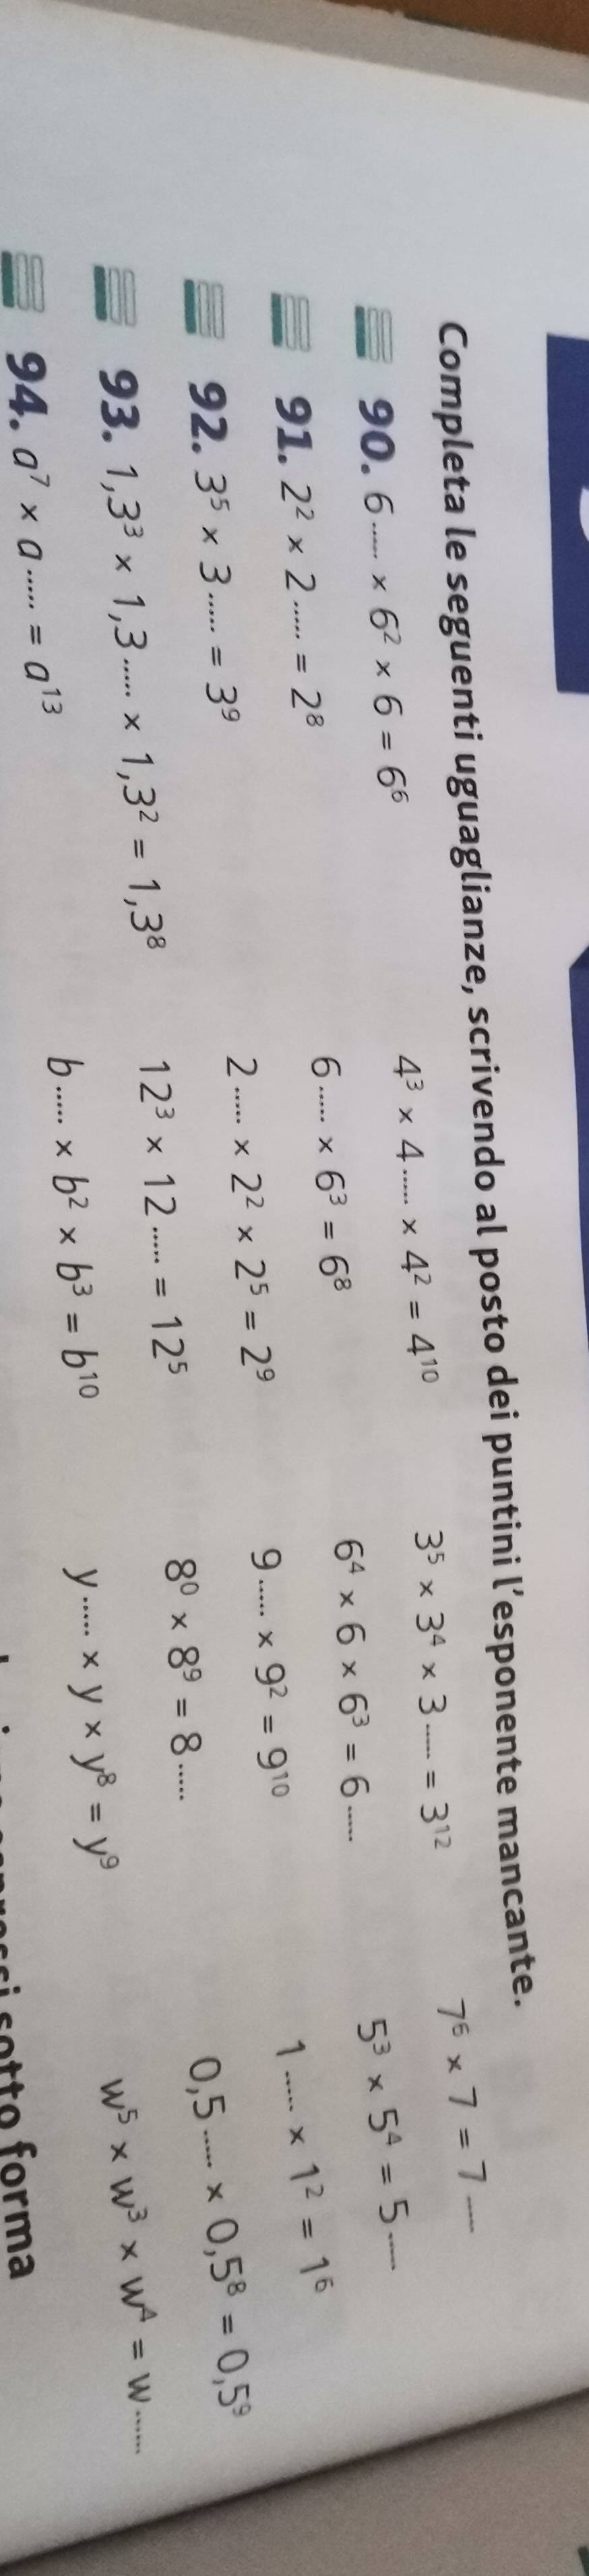 Completa le seguenti uguaglianze, scrivendo al posto dei puntini l'esponente mancante.
90. 6..... × 6² × 6 = 6⁶ 4³ × 4..... × 4² = 4¹⁰ 3⁵ × 3⁴ × 3..... = 3¹² 7⁶ × 7 = 7.....
91. 2² × 2..... = 2⁸ 6..... × 6³ = 6⁸ 6⁴ × 6 × 6³ = 6..... 5³ × 5⁴ = 5.....
92. 3⁵ × 3..... = 3⁹ 2..... × 2² × 2⁵ = 2⁹ 9..... × 9² = 9¹⁰ 1..... × 1² = 1⁶
93. 1,3³ × 1,3..... × 1,3² = 1,3⁸ 12³ × 12..... = 12⁵ 8⁰ × 8⁹ = 8..... 0,5..... × 0,5⁸ = 0,5⁹
94. a⁷ × a..... = a¹³ b..... × b² × b³ = b¹⁰ y..... × y × y⁸ = y⁹ w⁵ × w³ × w⁴ = w.....
sotto forma